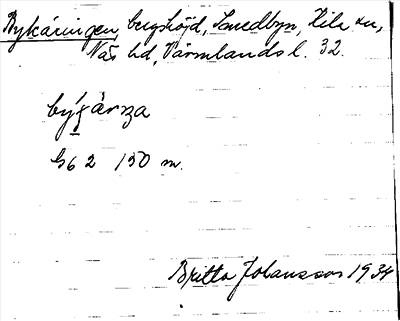 Bykärringen, bergshöjd, Smedbyn, Kila sn,
Näs hd, Värmlands l. 32.
G6 2 150 m.
Britta Johansson 1934